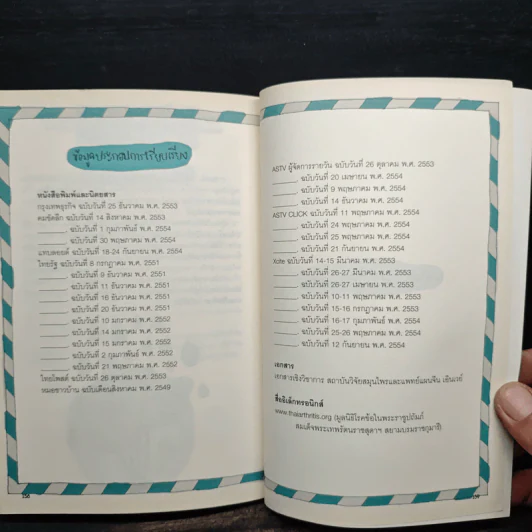 ข้อมูลประกอบการเรียบเรียง
หนังสือพิมพ์และนิตยสาร
กรุงเทพธุรกิจ ฉบับวันที่ 25 ธันวาคม พ.ศ. 2553
คมชัดลึก ฉบับวันที่ 14 สิงหาคม พ.ศ. 2553
_______, ฉบับวันที่ 1 กุมภาพันธ์ พ.ศ. 2554
_______, ฉบับวันที่ 30 พฤษภาคม พ.ศ. 2554
แทบลอยด์ ฉบับวันที่ 18-24 กันยายน พ.ศ. 2554
ไทยรัฐ ฉบับวันที่ 8 กรกฎาคม พ.ศ. 2551
_______, ฉบับวันที่ 9 ธันวาคม พ.ศ. 2551
_______, ฉบับวันที่ 11 ธันวาคม พ.ศ. 2551
_______, ฉบับวันที่ 16 ธันวาคม พ.ศ. 2551
_______, ฉบับวันที่ 20 ธันวาคม พ.ศ. 2551
_______, ฉบับวันที่ 10 มกราคม พ.ศ. 2552
_______, ฉบับวันที่ 14 มกราคม พ.ศ. 2552
_______, ฉบับวันที่ 15 มกราคม พ.ศ. 2552
_______, ฉบับวันที่ 2 กุมภาพันธ์ พ.ศ. 2552
_______, ฉบับวันที่ 21 พฤษภาคม พ.ศ. 2552
ไทยโพสต์ ฉบับวันที่ 26 ตุลาคม พ.ศ. 2553
หมอชาวบ้าน ฉบับเดือนสิงหาคม พ.ศ. 2549
ASTV ผู้จัดการรายวัน ฉบับวันที่ 26 ตุลาคม พ.ศ. 2553
_______, ฉบับวันที่ 20 เมษายน พ.ศ. 2554
_______, ฉบับวันที่ 9 พฤษภาคม พ.ศ. 2554
_______, ฉบับวันที่ 14 ธันวาคม พ.ศ. 2554
ASTV CLICK ฉบับวันที่ 11 พฤษภาคม พ.ศ. 2554
_______, ฉบับวันที่ 24 พฤษภาคม พ.ศ. 2554
_______, ฉบับวันที่ 25 พฤษภาคม พ.ศ. 2554
_______, ฉบับวันที่ 21 กันยายน พ.ศ. 2554
Xcite ฉบับวันที่ 14-15 มีนาคม พ.ศ. 2553
_______, ฉบับวันที่ 26-27 มีนาคม พ.ศ. 2553
_______, ฉบับวันที่ 26-27 เมษายน พ.ศ. 2553
_______, ฉบับวันที่ 10-11 พฤษภาคม พ.ศ. 2553
_______, ฉบับวันที่ 15-16 กรกฎาคม พ.ศ. 2553
_______, ฉบับวันที่ 16-17 กุมภาพันธ์ พ.ศ. 2554
_______, ฉบับวันที่ 25-26 พฤษภาคม พ.ศ. 2554
_______, ฉบับวันที่ 12 กันยายน พ.ศ. 2554
เอกสาร
เอกสารเชิงวิชาการ สถาบันวิจัยสมุนไพรและแพทย์แผนจีน เอินเวย์
สื่ออิเล็กทรอนิกส์
www.thaiarthritis.org (มูลนิธิโรคข้อในพระราชูปถัมภ์
สมเด็จพระเทพรัตนราชสุดาฯ สยามบรมราชกุมารี)